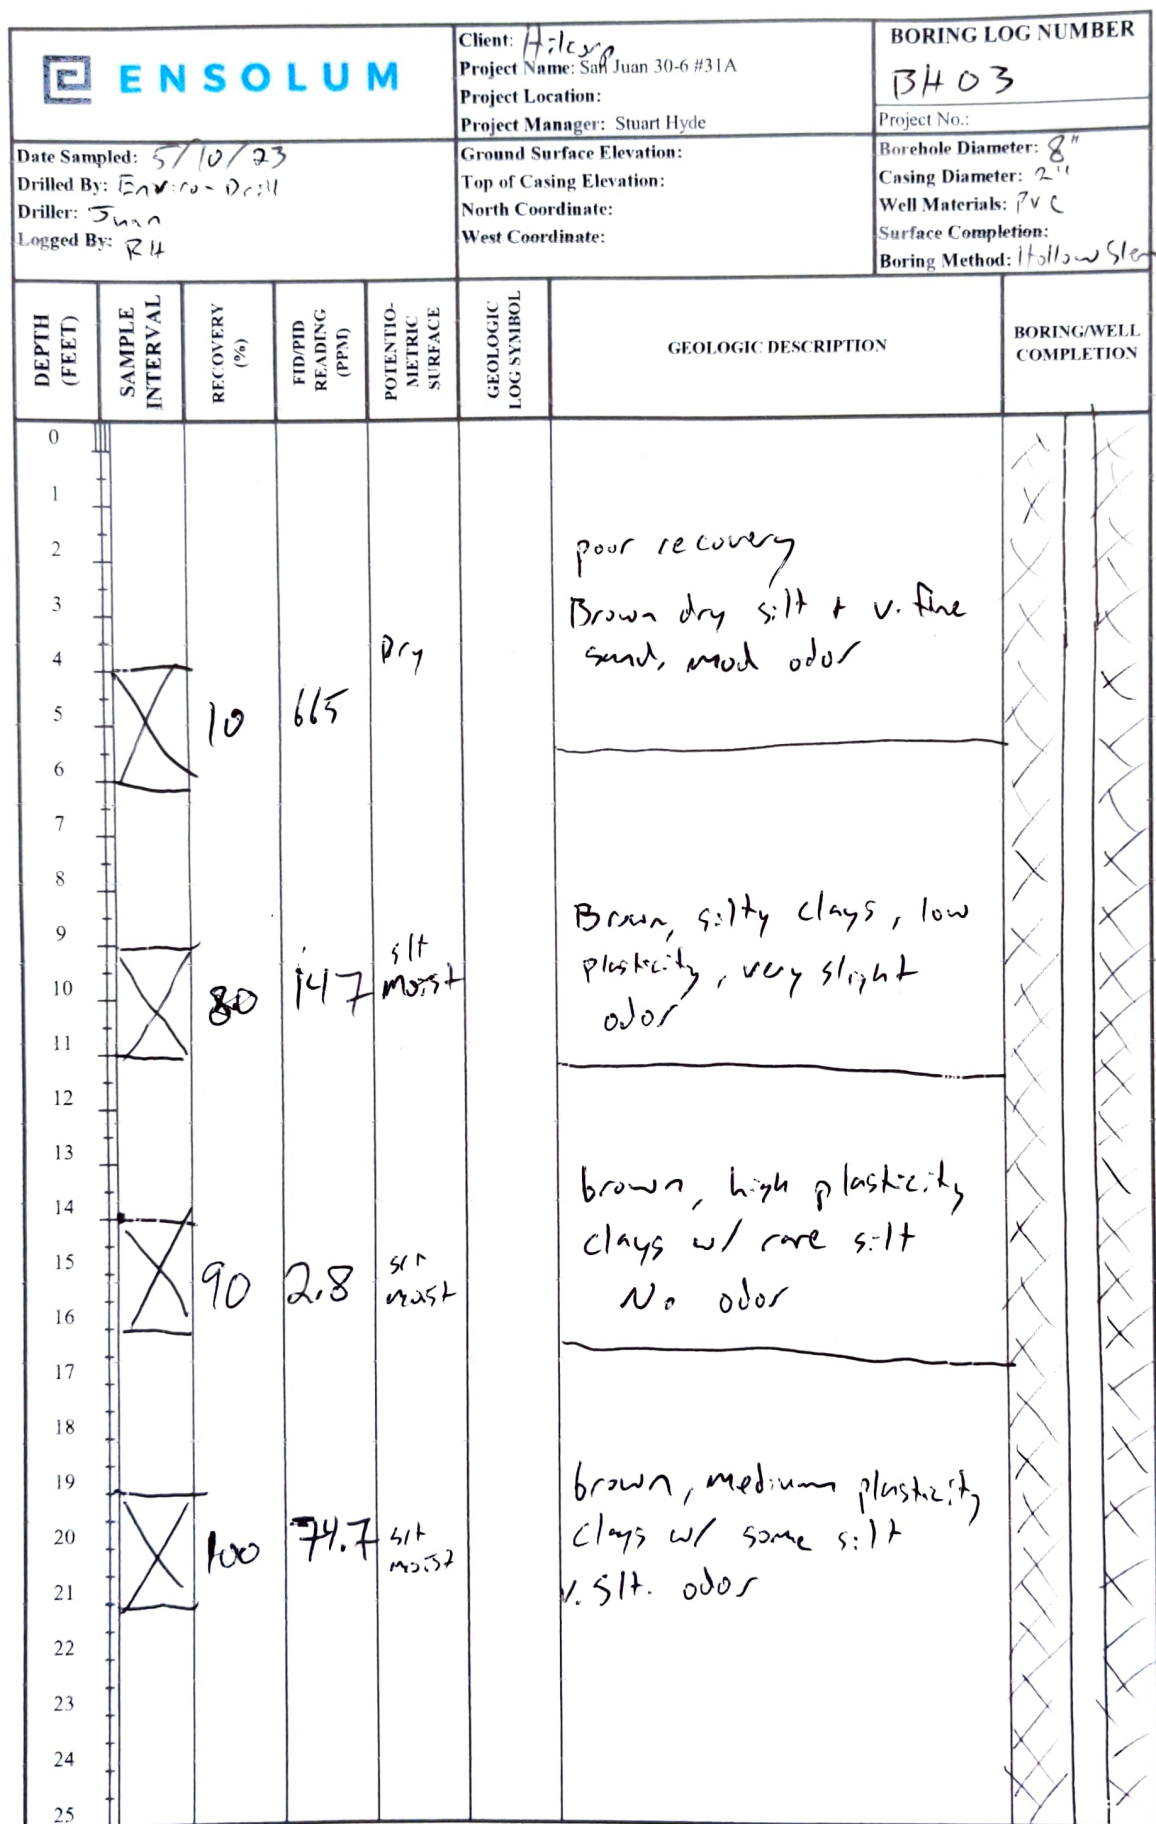 ENSOLUM
Client: Hilcorp
Project Name: San Juan 30-6 #31A
Project Location:
Project Manager: Stuart Hyde
BORING LOG NUMBER
BH03
Project No.:
Date Sampled: 5/10/23
Drilled By: Enviro-Drill
Driller: Juan
Logged By: RH
Ground Surface Elevation:
Top of Casing Elevation:
North Coordinate:
West Coordinate:
Borehole Diameter: 8"
Casing Diameter: 2"
Well Materials: PVC
Surface Completion:
Boring Method: Hollow Stem
DEPTH (FEET)
SAMPLE INTERVAL
RECOVERY (%)
FID/PID READING (PPM)
POTENTIO-METRIC SURFACE
GEOLOGIC LOG SYMBOL
GEOLOGIC DESCRIPTION
BORING/WELL COMPLETION
0
1
2
poor recovery
3
Brown dry silt + v. fine
4
Dry
sand, mod odor
5
10 665
6
7
8
9
Brown, silty clays, low
slt
plasticity, very slight
10
80 147 moist
odor
11
12
13
14
brown, high plasticity
clays w/ rare silt
15
90 2.8 slt
moist
No odor
16
17
18
19
brown, medium plasticity
20
100 74.7 slt
moist
clays w/ some silt
21
v. slt. odor
22
23
24
25